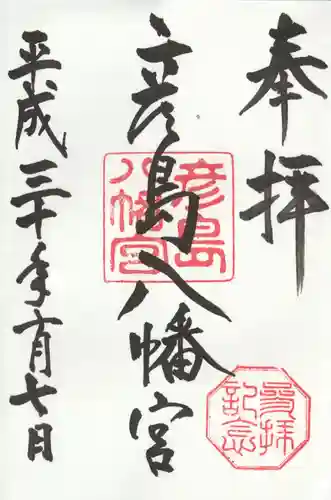 奉拝
彦島八幡宮
平成三十年六月七日
彦島
八幡宮
参拝
記念